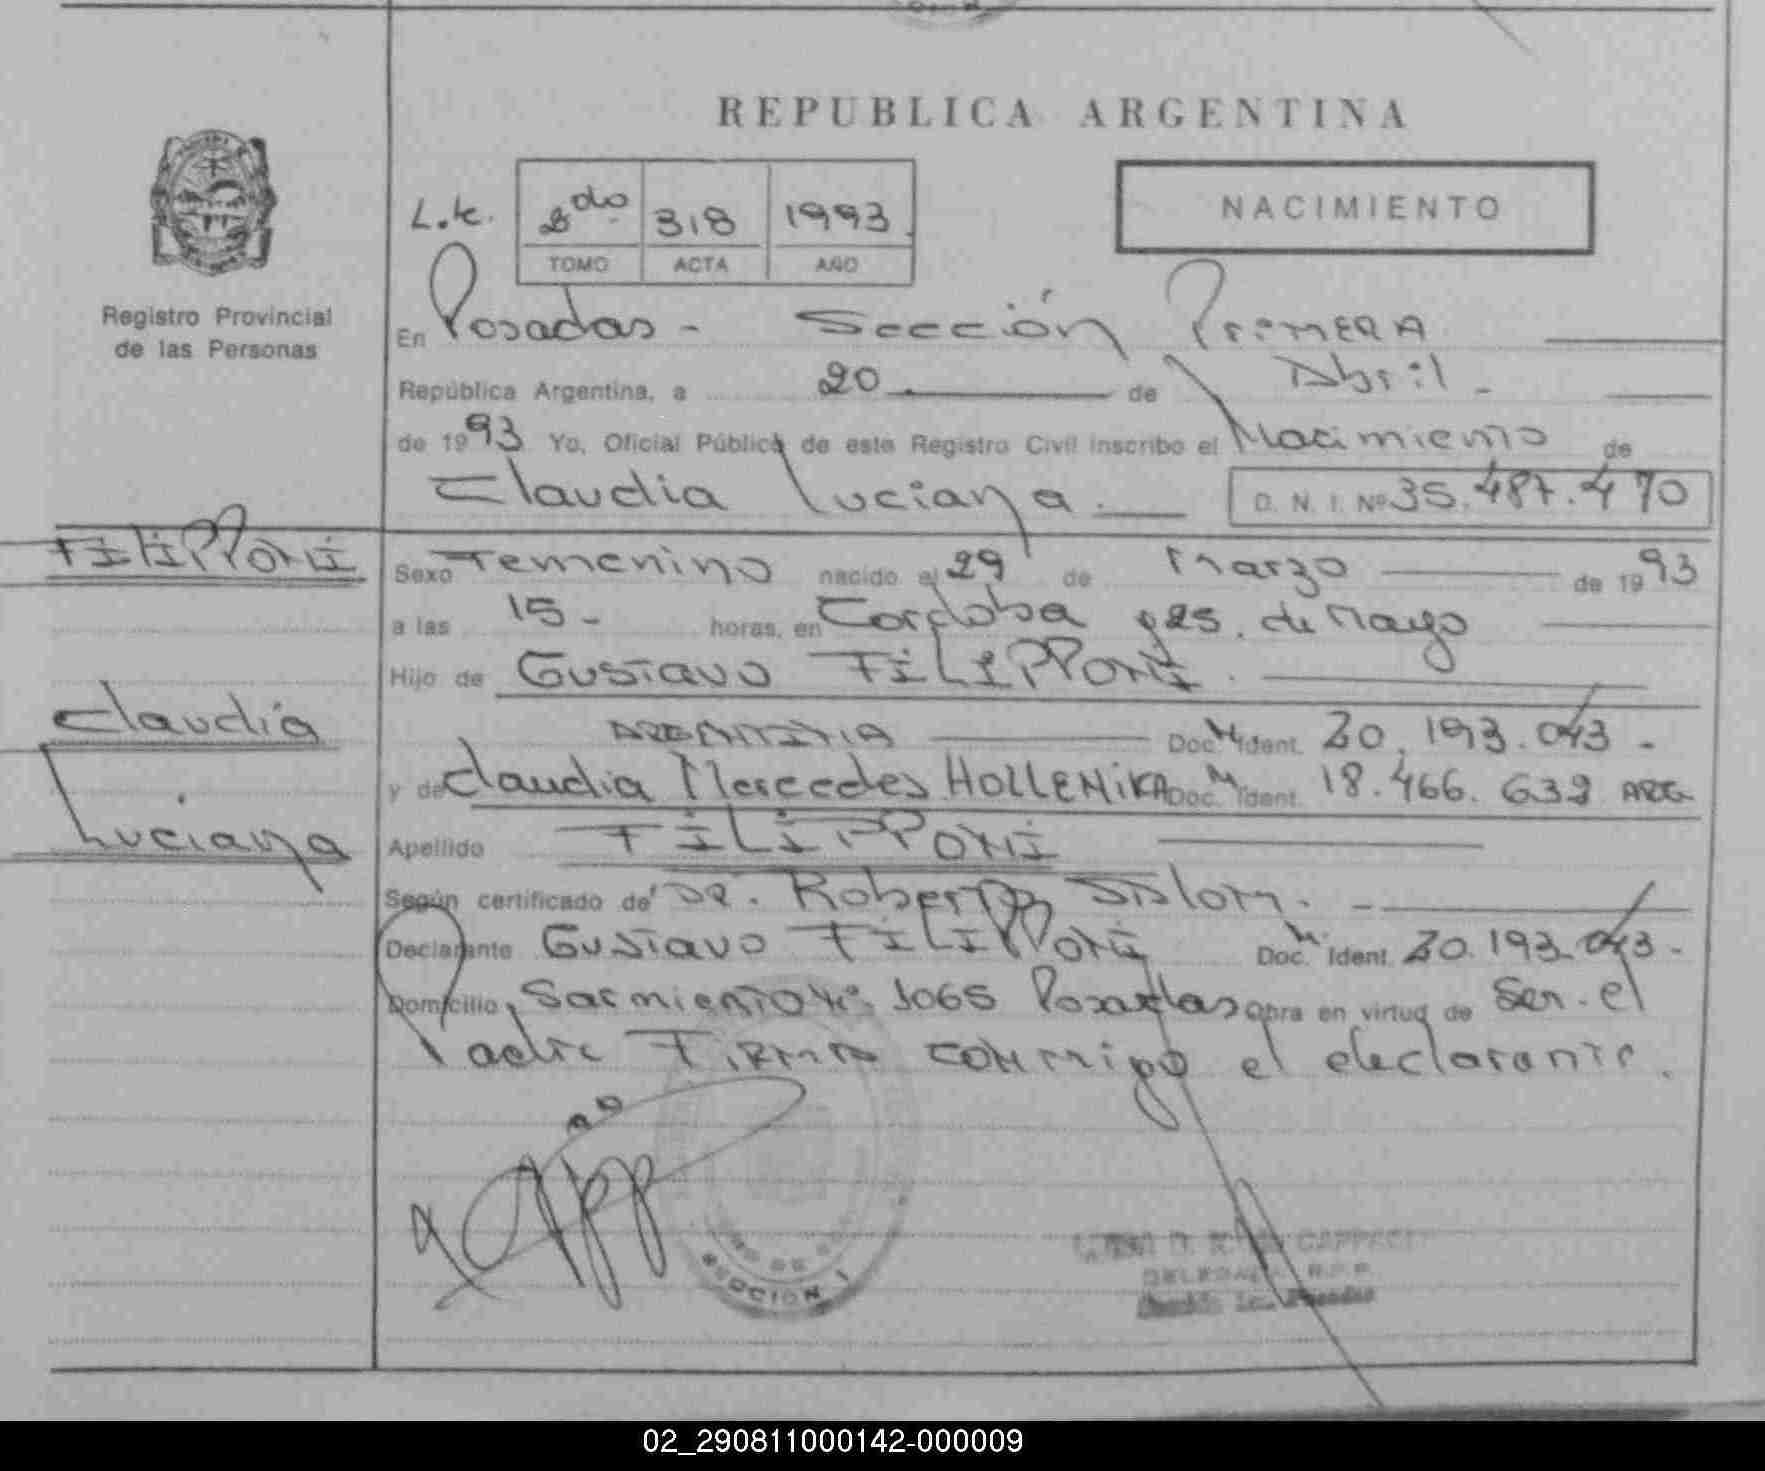 REPUBLICA ARGENTINA
L.c. 2do 318 1993
TOMO ACTA AÑO
NACIMIENTO
Registro Provincial
de las Personas
En Posadas - Sección Primera
República Argentina, a 20 de Abril -
de 1993 Yo, Oficial Público de este Registro Civil inscribo el Nacimiento de
Claudia Luciana. D. N. I. Nº 35.487.470
FILIPPONI
Claudia
Luciana
Sexo Femenino nacido el 29 de Marzo de 1993
a las 15 - horas, en Cordoba y 25. de Mayo
Hijo de Gustavo FILIPPONI.
ARGENTINA Doc. M Ident. 20.193.043 -
y de Claudia Mercedes HOLLENIKA Doc. M Ident. 18.466.632 ARG
Apellido FILIPPONI
Según certificado de Dr. Roberto
Declarante Gustavo FILIPPONI Doc. M. Ident. 20.193.043 -
Domicilio Sarmiento Nº 1065 Posadas Obra en virtud de Ser el
Padre Firma conmigo el declarante.
SECCION 1
DELEGADA R.P.P.
02_290811000142-000009